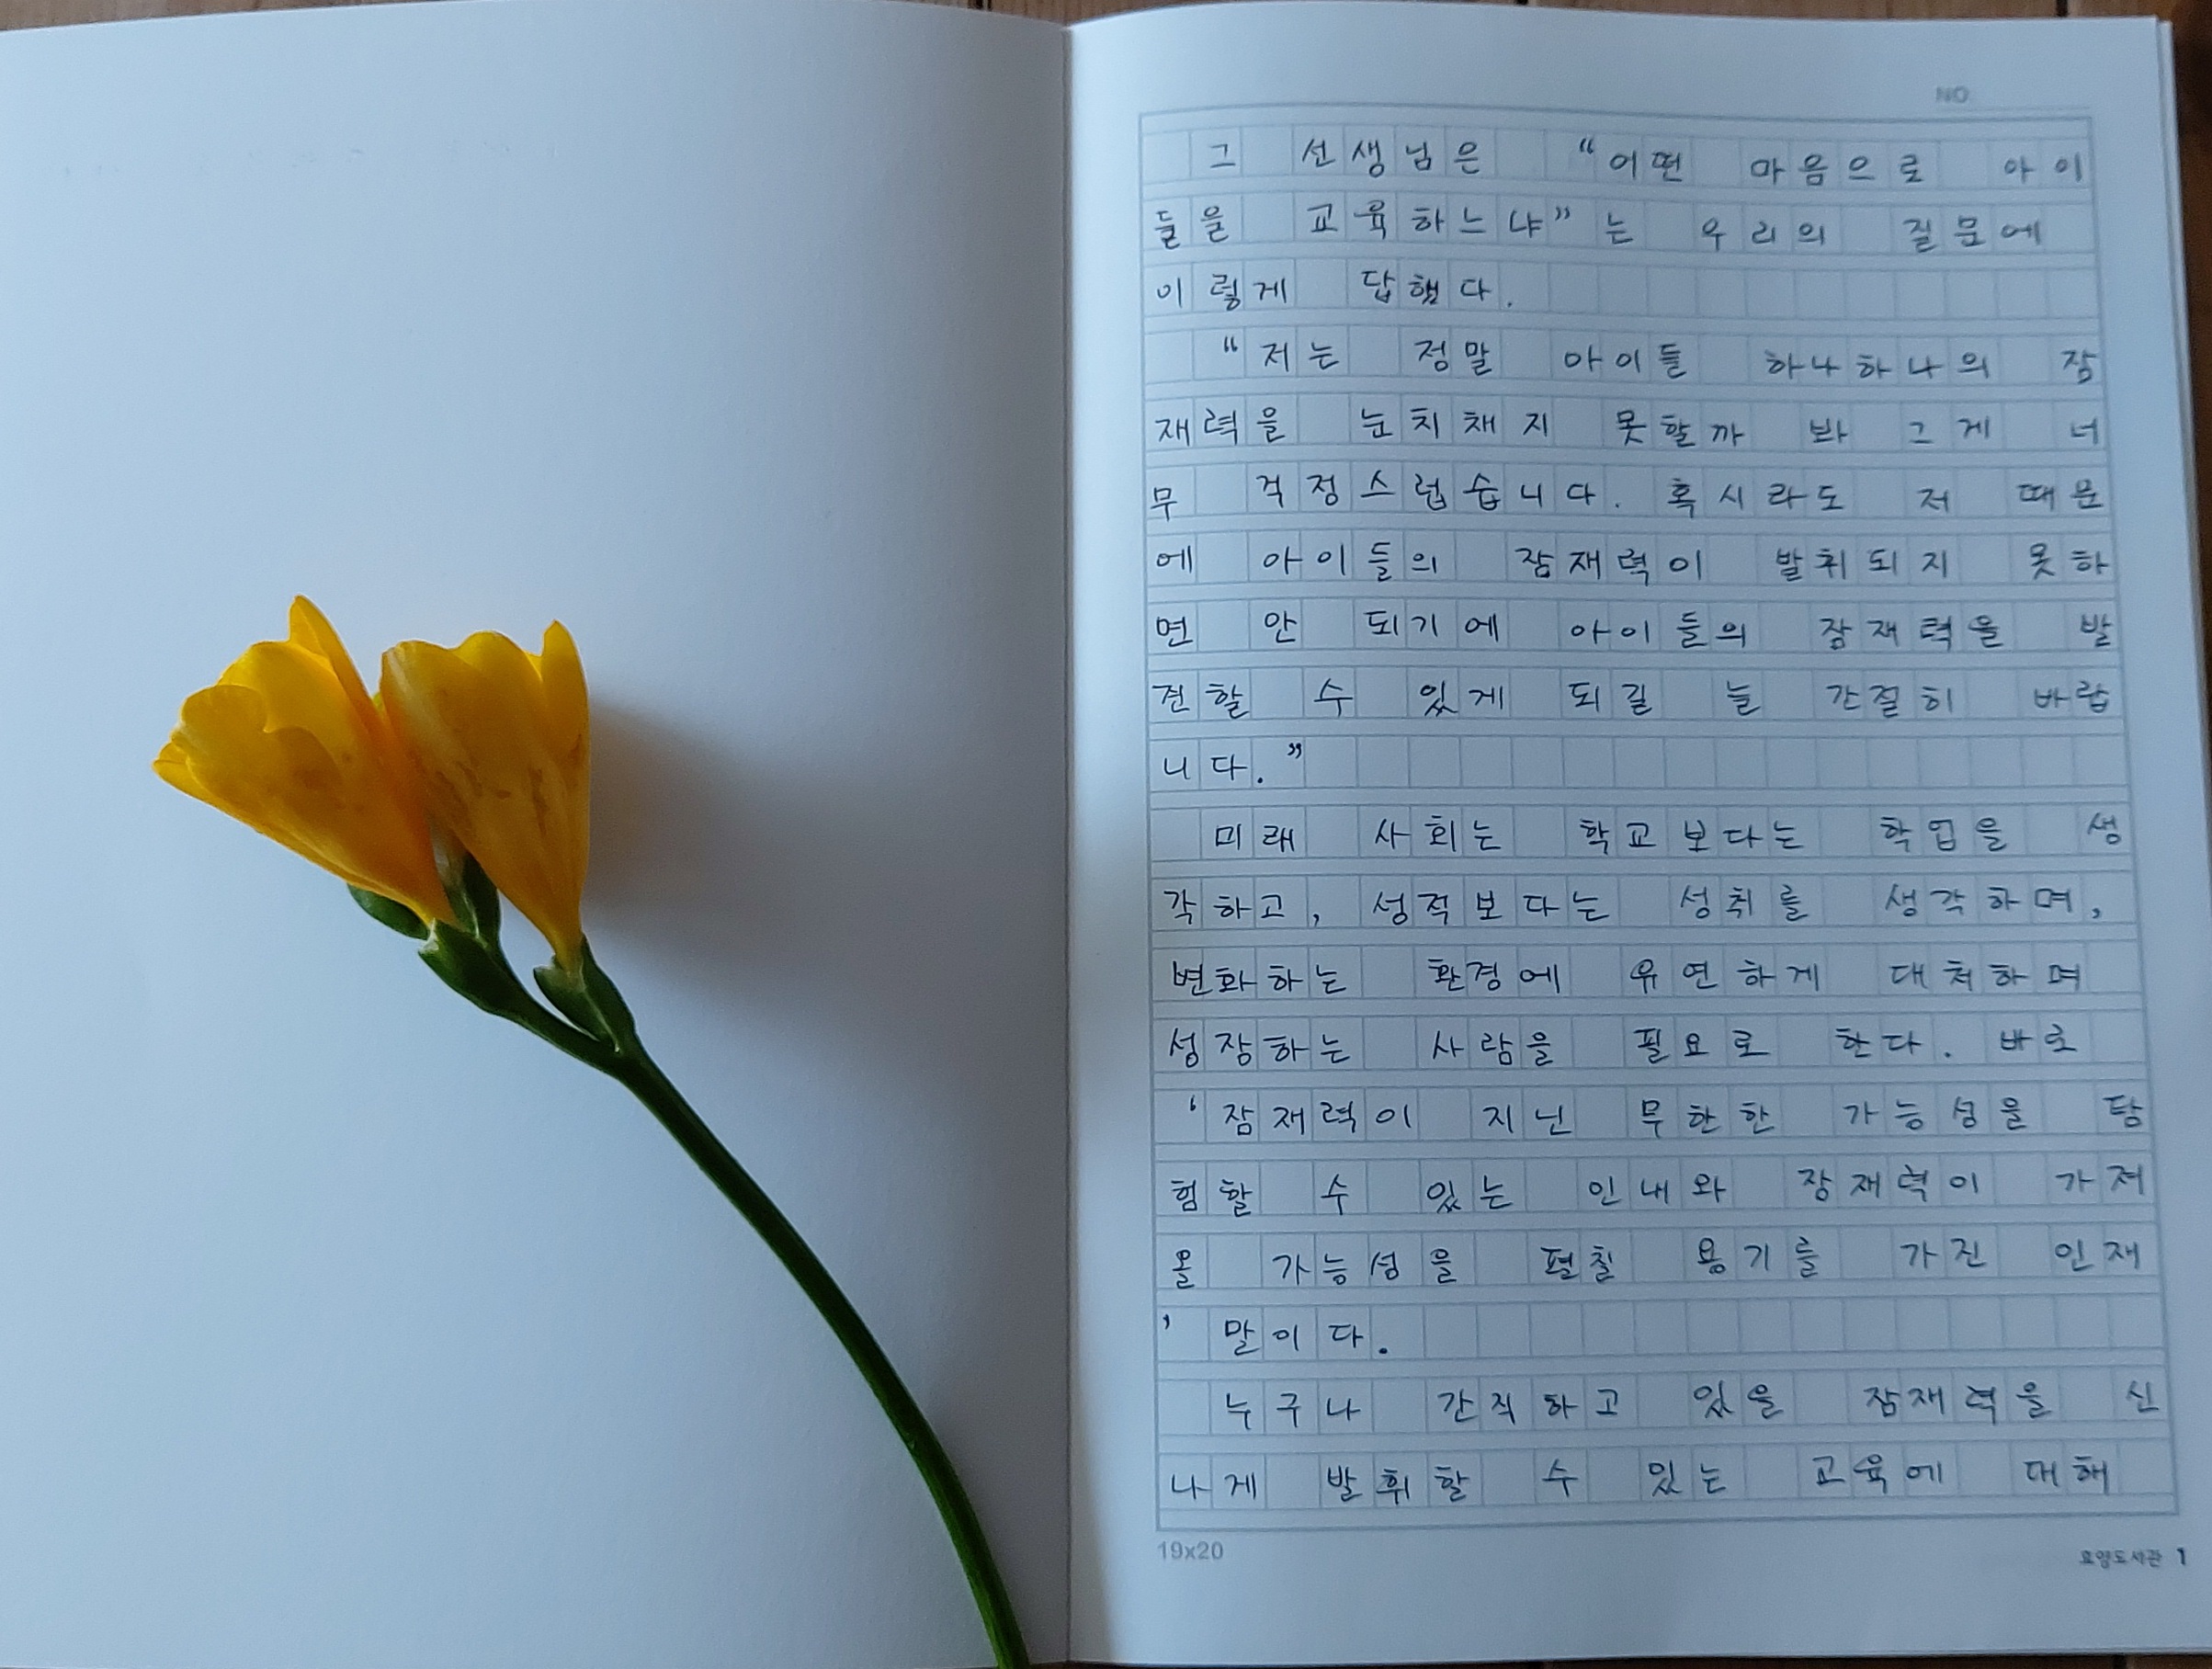 NO
그 선생님은 “어떤 마음으로 아이
들을 교육하느냐” 는 우리의 질문에
이렇게 답했다.
“저는 정말 아이들 하나하나의 잠
재력을 눈치채지 못할까 봐 그게 너
무 걱정스럽습니다. 혹시라도 저 때문
에 아이들의 잠재력이 발취되지 못하
면 안 되기에 아이들의 잠재력을 발
견할 수 있게 되길 늘 간절히 바랍
니다.”
미래 사회는 학교보다는 학업을 생
각하고, 성적보다는 성취를 생각하며,
변화하는 환경에 유연하게 대처하며
성장하는 사람을 필요로 한다. 바로
‘잠재력이 지닌 무한한 가능성을 탐
험할 수 있는 인내와 잠재력이 가져
올 가능성을 펼칠 용기를 가진 인재
’ 말이다.
누구나 간직하고 있을 잠재력을 신
나게 발휘할 수 있는 교육에 대해
19x20
1